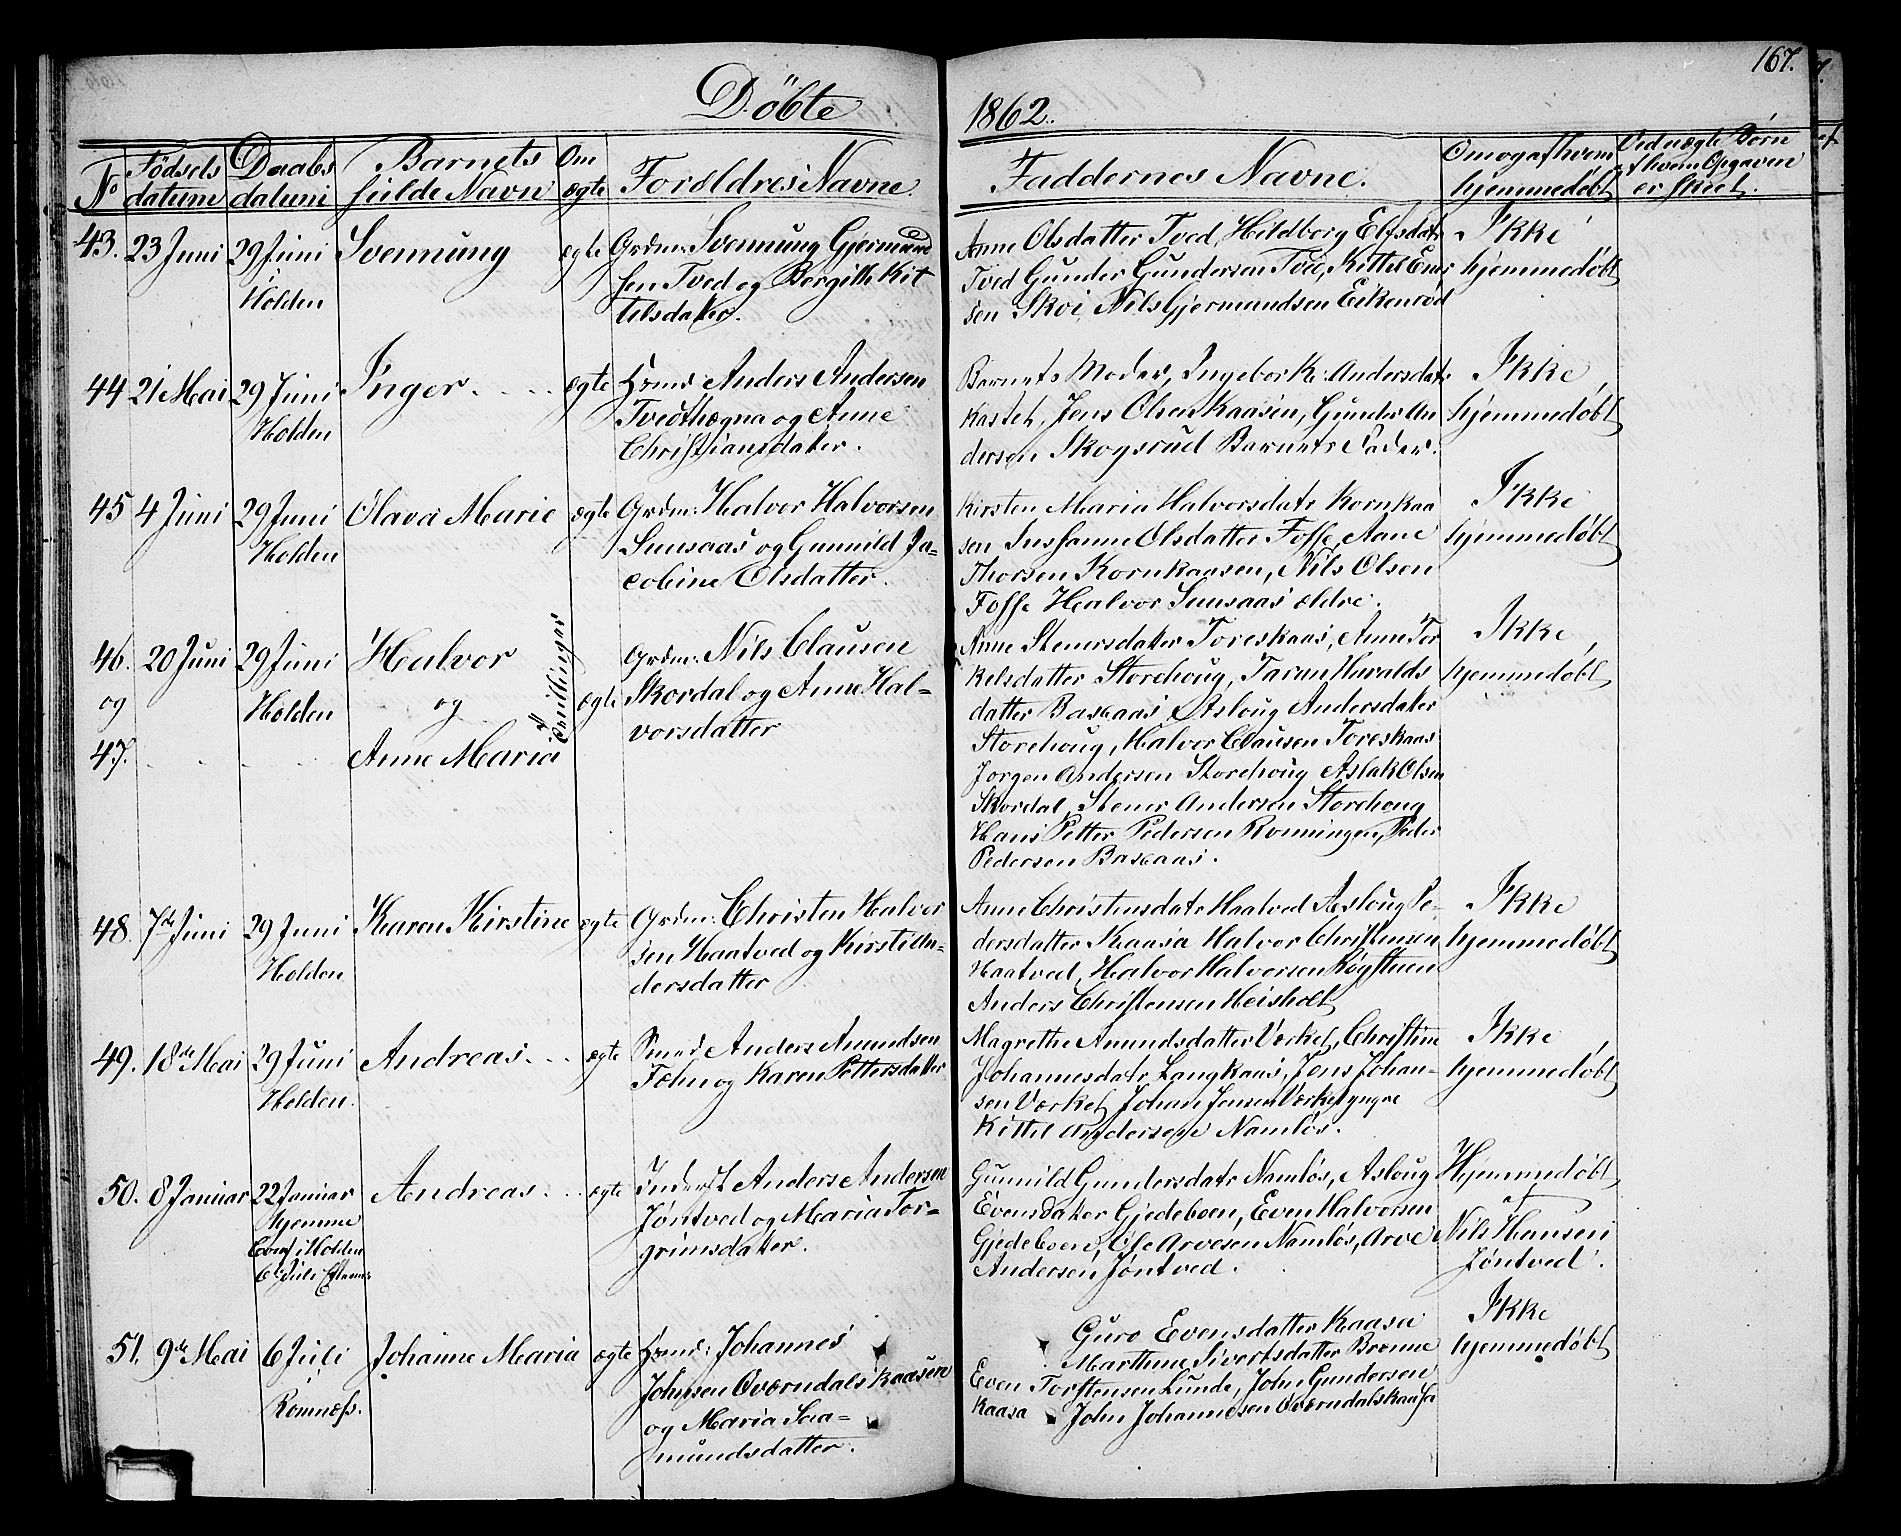 167.
Döbte
1862.
No
Födsels
datum
Daabs
datum
Barnets
fulde Navn
Om
ægte
Forældres Navne.
Faddernes Navne.
Om og af hvem
hjemmedøbt
Ved uægte Børn
af hvem Opgaven
er skeet.
43. 23 Juni 29 Juni Svennung ægte Grdm: Svennung Gjermund
Holden
sen Tved og Bergith Kit
tilsdatter.
Anne Olsdatter Tved, Hildborg Elfsdatr
Tved Gunder Gundersen Tved, Kittel
sen Skoi, Nils Gjermundsen Eikenrød
Ikke
hjemmedøbt
44 21 Mai 29 Juni Inger ægte Hsmd: Anders Andersen
Holden
Tvedthægna og Anne
Christiansdatter.
Barnets Moder, Ingebor K: Andersdatr
Kastet, Jens Olsen Kaasen, Gunder An
dersen Skogsrud Barnets Fader.
Ikke
hjemmedøbt
45 4 Juni 29 Juni Olava Marie ægte Grdm: Halvor Halvorsen
Holden
Sunsaas og Gunnild Ja-
cobine Olsdatter.
Kirsten Maria Halvorsdatr Kornkaa
sen Sussanne Olsdatter Fosse, Aane
Thorsen Kornkaasen, Nils Olsen
Fosse Halvor Sunsaas ældre.
Ikke
hjemmedøbt
46. 20 Juni 29 Juni Halvor
og Holden og
47. Anne Maria
Tvillinger
ægte
Grdm: Nils Clausen
Skordal og Anne Hal-
vorsdatter
Anne Stenersdatter Toreskaas, Anne Tor
kelsdatter Storehoug, Taran Havalds
datter Baskaas, Asloug Andersdatter
Storehoug, Halvor Clausen Toreskaas
Jorgen Andersen Storehoug Aslak Olsen
Skordal, Stener Andersen Storehoug
Hans Petter Pedersen Ronningen, Peder
Pedersen Baskaas.
Ikke
hjemmedøbt
48. 7de Juni 29 Juni Karen Kirstine ægte Grdm: Christen Halvor
Holden
sen Haatved og Kirsti An-
dersdatter
Anne Christensdatr Haatved Asloug Pe-
dersdatter Kaasa Halvor Christensen
Haatved, Halvor Halvorsen Røgstuen
Anders Christensen Heisholt
Ikke
hjemmedøbt
49. 18de Mai 29 Juni Andreas ægte Smed Anders Amundsen
Holden.
Tæhn og Karen Pettersdatter
Magrethe Amundsdatter Værket, Christine
Johannesdatr Langkaas, Jens Johan-
sen Værket Johan Jensen Værket yngre
Kittil Andersen Namløs.
Ikke
hjemmedøbt
50. 8 Januar 22 Januar Andreas ægte Inderst Anders Andersen
hjemme
Conf i Holden
6te Juli
Jøntved og Maria Tor-
grimsdatter.
Gunnild Gundersdatr Namløs, Asloug
Evensdatter Gjedeboen, Even Halvorsen
Gjedeboen, Ole Arvesen Namløs, Arve
Andersen Jøntved.
Hjemmedøbt
af
Nils Hansen
Jøntved.
51. 9de Mai 6 Juli Johanne Maria ægte Hsmd: Johannes
Romnæss.
Johnsen Overndalskaasen
og Maria Saa-
mundsdatter.
Guro Evensdatter Kaasa
Marthine Sivertsdatter Bronne
Even Torstensen Lunde, John Gundersen
Kaasa John Johannesen Overndalskaasa
Ikke
hjemmedøbt